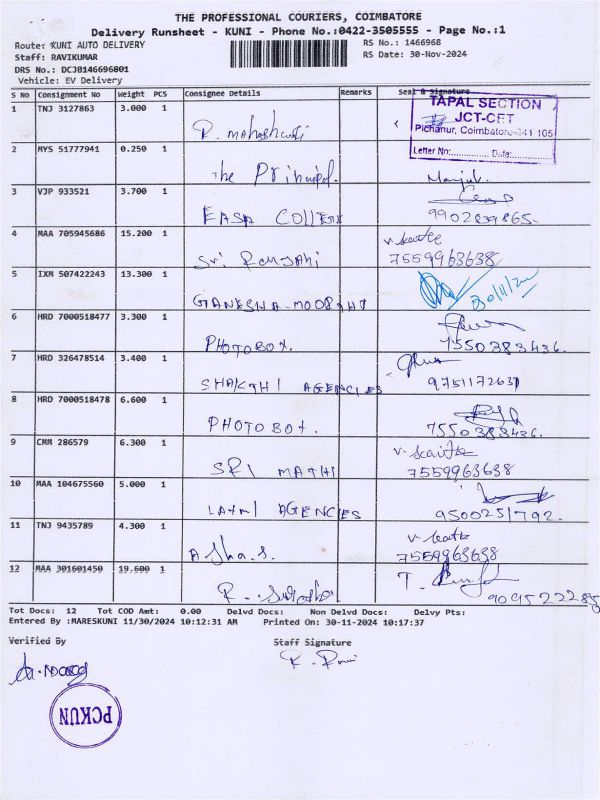 THE PROFESSIONAL COURIERS, COIMBATORE
Delivery Runsheet - KUNI - Phone No.:0422-3505555 - Page No.:1
Route: KUNI AUTO DELIVERY
Staff: RAVIKUMAR
DRS No.: DCJB146696801
Vehicle: EV Delivery
RS No.: 1466968
RS Date: 30-Nov-2024
S No Consignment No Weight PCS Consignee Details Remarks Seal & Signature
TAPAL SECTION
JCT-CET
Pichanur, Coimbatore-641 105
Letter No:.............. Date:..............
1 TNJ 3127863 3.000 1
2 MYS 51777941 0.250 1 The Principal.
3 VJP 933521 3.700 1 EASA COLLEGE
4 MAA 705945686 15.200 1 Sri Ranjani 7559963638
5 IXM 507422243 13.300 1 GANESHA-MOORTHI 30/11/24
6 HRD 7000518477 3.300 1 PHOTOBOX. 7550383436.
7 HRD 326478514 3.400 1 SHAKTHI AGENCIES 9751172631
8 HRD 7000518478 6.600 1 PHOTOBOX. 7550383436.
9 CMM 286579 6.300 1 SRI MATHI 7559963638
10 MAA 104675560 5.000 1 LAXMI AGENCIES 9500251792.
11 TNJ 9435789 4.300 1 Asha.S. 7559963638
12 MAA 301601450 19.600 1
Tot Docs: 12 Tot COD Amt: 0.00 Delvd Docs: Non Delvd Docs: Delvy Pts:
Entered By :MARESKUNI 11/30/2024 10:12:31 AM Printed On: 30-11-2024 10:17:37
Verified By Staff Signature
PCKUN